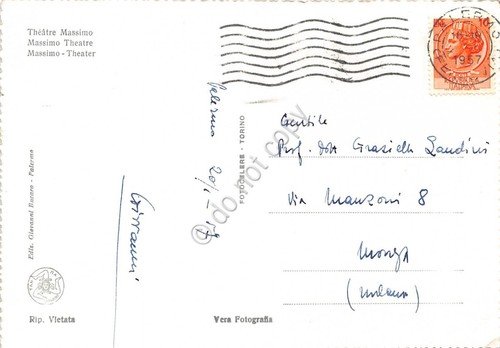 Théâtre Massimo
Massimo Theatre
Massimo - Theater
Ediz. Giovanni - Palermo
Rip. Vietata
Palermo
FOTOCELERE - TORINO
Vera Fotografia
PALERMO
1957
Gentile
Prof. Graziella Landini
Via Manzoni 8
Monza
(Milano)
do not copy